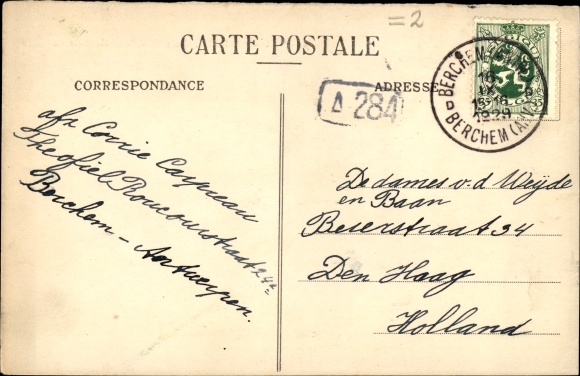 =2
CARTE POSTALE
CORRESPONDANCE
ADRESSE
Δ 284
BERCHEM (ANTW)
15-16
1929
BERCHEM (ANTW)
35
afz Corrie Carpreau
Theofiel Roucourstraat 24
Berchem - Antwerpen.
De dames v.d Weijde
en Baan
Beierstraat 34
Den Haag
Holland